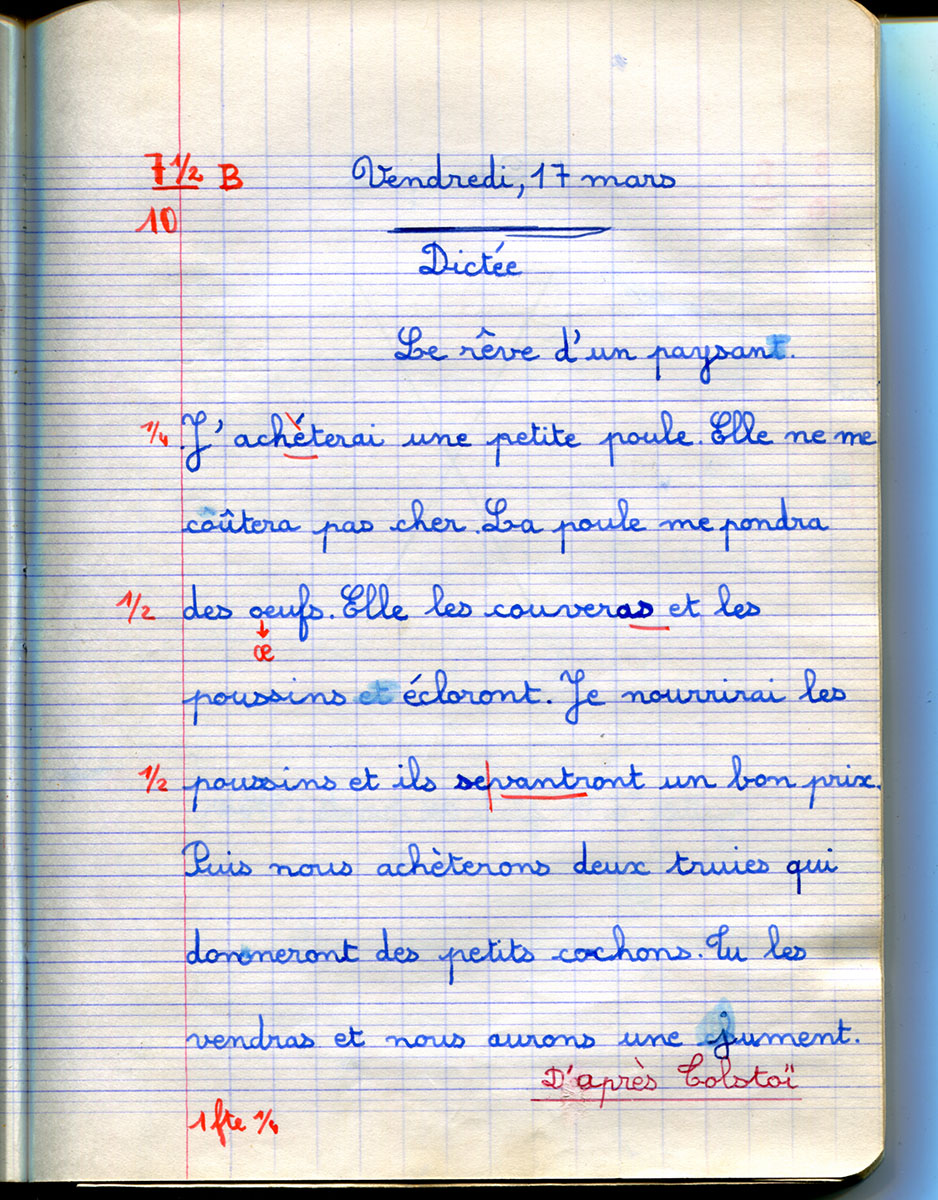 7 1/2 B Vendredi, 17 mars
10
Dictée
Le rêve d'un paysant.
1/4 J'achéterai une petite poule. Elle ne me
coûtera pas cher. La poule me pondra
1/2 des oeufs. Elle les couveras et les
œ
poussins et écloront. Je nourrirai les
1/2 poussins et ils sevantront un bon prix.
Puis nous achèterons deux truies qui
donneront des petits cochons. Tu les
vendras et nous aurons une jument.
D'après Tolstoï
1 fte 1/4